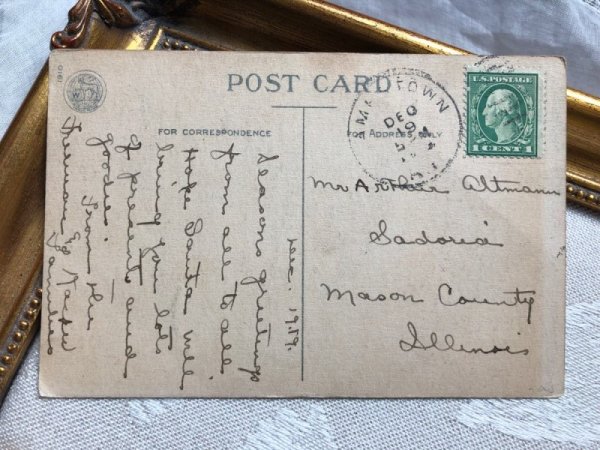 POST CARD
U.S. POSTAGE
1 CENT 1
DEC
FOR CORRESPONDENCE
FOR ADDRESS ONLY
1910
Dec. 1919.
Seasons greetings
from all to all
Hope Santa will
bring you lots
of presents and
goodies.
From the
Families
Mr Arthur Altmann
Sadoria
Mason County
Illinois